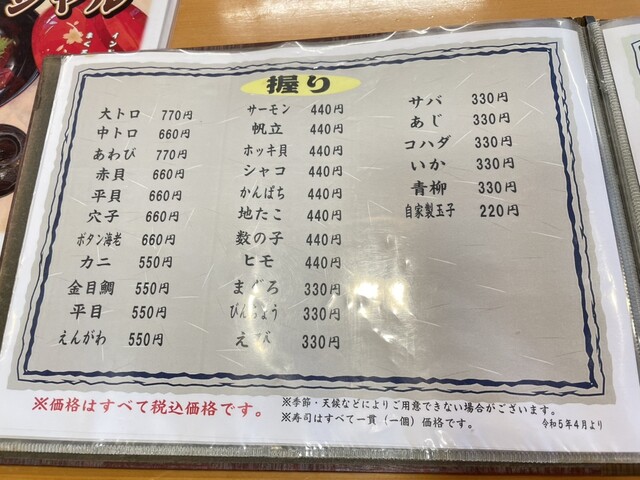 握り
大トロ 770円
中トロ 660円
あわび 770円
赤貝 660円
平貝 660円
穴子 660円
ボタン海老 660円
カニ 550円
金目鯛 550円
平目 550円
えんがわ 550円
サーモン 440円
帆立 440円
ホッキ貝 440円
シャコ 440円
かんぱち 440円
地たこ 440円
数の子 440円
ヒモ 440円
まぐろ 330円
びんちょう 330円
えび 330円
サバ 330円
あじ 330円
コハダ 330円
いか 330円
青柳 330円
自家製玉子 220円
※価格はすべて税込価格です。
※季節・天候などによりご用意できない場合がございます。
※寿司はすべて一貫（一個）価格です。
令和5年4月より